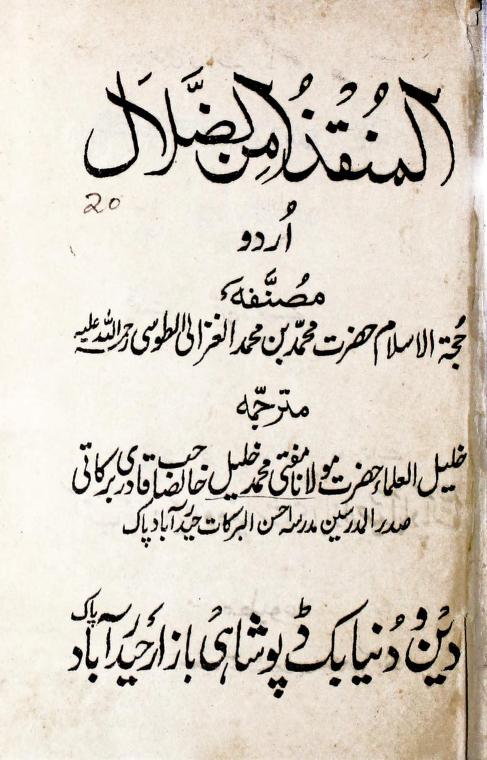 المُنقذُ مِن الضَّلال
20
اُردو
مُصنَّفہٴ
حُجۃ الاسلام حضرت محمّد بن محمد الغزالی الطوسی رحمۃ اللہ علیہ
مترجّمہ
خلیل العلماء حضرت مولانا مفتی محمد خلیل خاں صاحب قادری برکاتی
صدر المدرسین مدرسہ احسن البرکات حیدرآباد پاک
دین و دُنیا بک ڈپو شاہی بازار حیدرآباد پاک